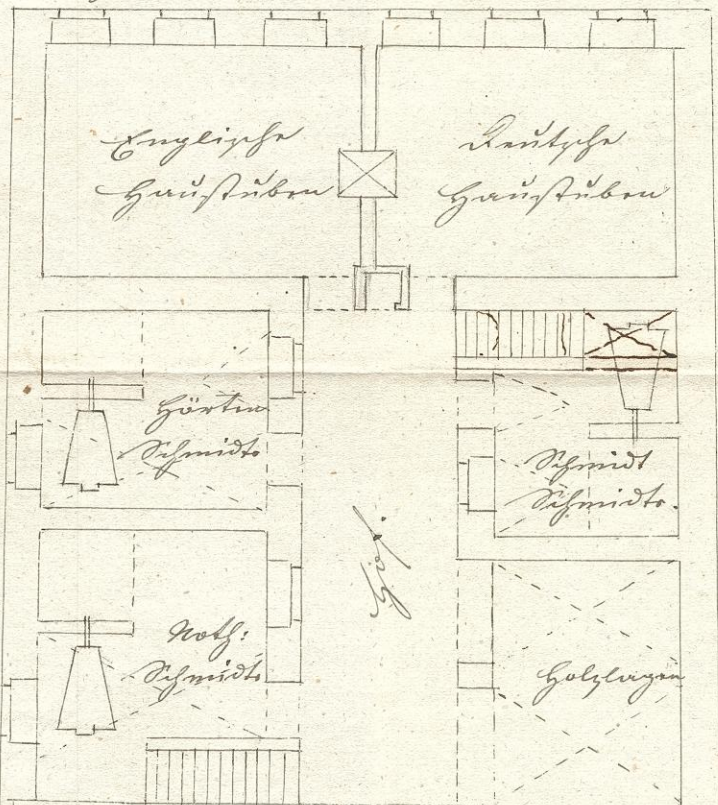 Englische
Haustuben
Deutsche
Haustuben
Härten
Schmidte
Schmidt
Schmidte.
Hof.
Noth:
Schmidte
Holzlagen